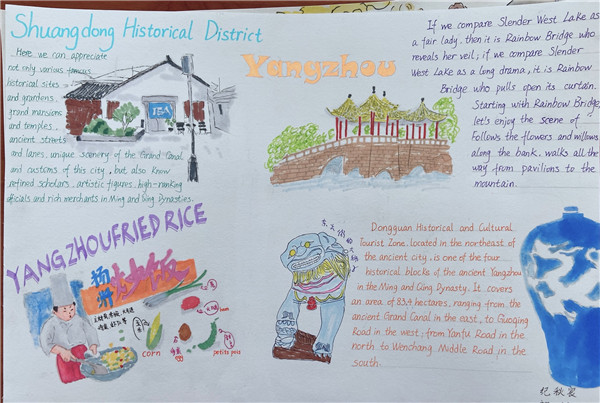 Shuangdong Historical District
Here, we can appreciate
not only various famous
historical sites
and grandens,
grand mansions
and temples,
ancient streets
and lanes, unique scenery of the Grand Canal
and customs of this city, but also know
refined scholars, artistic figures, high-ranking
officials and rich merchants in Ming and Qing Dynasties.
Yangzhou
If we compare Slender West Lake as
a fair lady, then it is Rainbow Bridge who
reveals her veil; if we compare Slender
West Lake as a long drama, it is Rainbow
Bridge who pulls open its curtain.
Starting with Rainbow Bridge,
let's enjoy the scene of
Follows the flowers and willows
along the bank, walks all the
way from pavilions to the
mountain.
YANGZHOUFRIED RICE
扬州炒饭
corn
petits pois
Dongguan Historical and Cultural
Tourist Zone, located in the northeast of
the ancient city, is one of the four
historical blocks of the ancient Yangzhou
in the Ming and Qing Dynasty. It covers
an area of 83.9 hectares, ranging from the
ancient Grand Canal in the east, to Guoqing
Road in the west; from Yanfu Road in the
north to Wenchang Middle Road in the
south.
纪秋宸